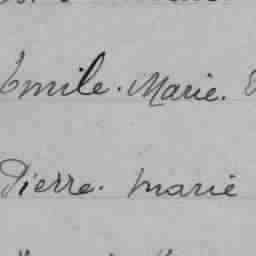 Emile. Marie.
Pierre. Marie